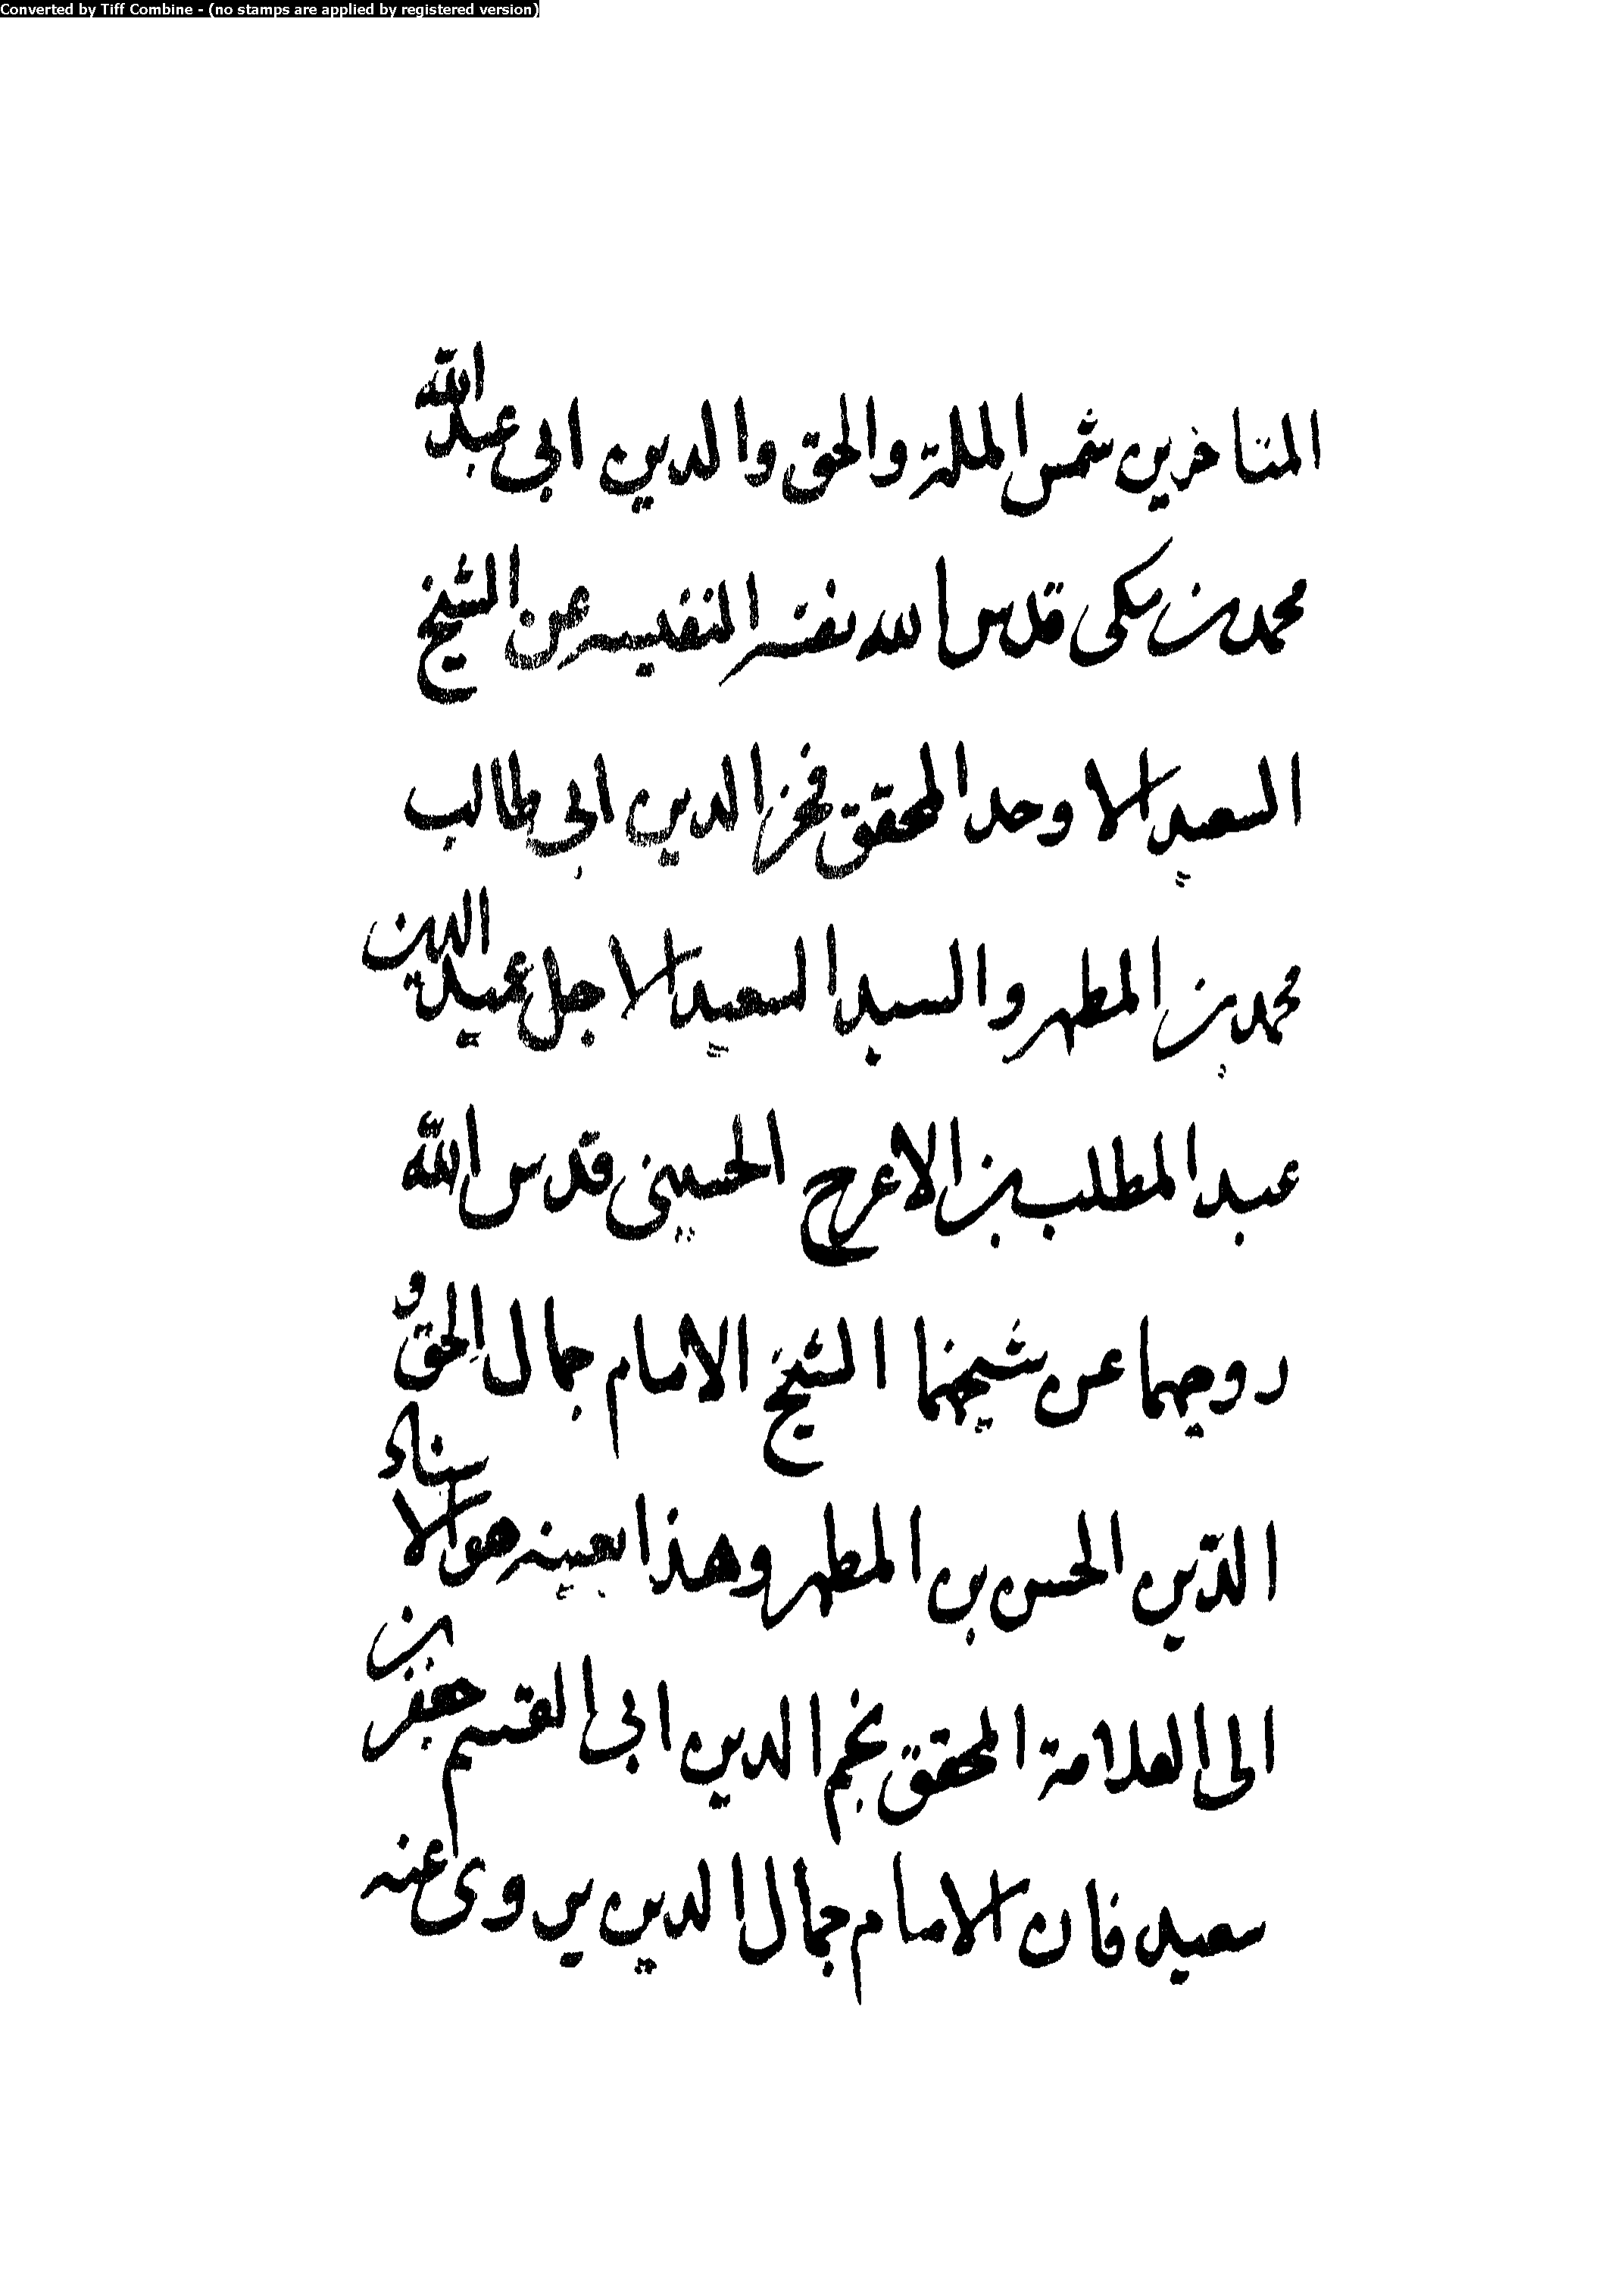 Converted by Tiff Combine - (no stamps are applied by registered version)
المتاخرين شمس الملة والحق والدين ابى عبدالله
محمد بن مكى قدس الله نفسه النفيسه عن الشيخ
السعيد الاوحد المحقق فخر الدين ابى طالب
محمد بن المطهر والسيد السعيد الاجل عميد الدين
عبد المطلب بن الاعرج الحسينى قدس الله
روحيهما عن شيخهما الشيخ الامام جمال الحق و
الدّين الحسن بن المطهر وهذا بعينه هو الاسناد
الى العلامة المحقق نجم الدين ابى القسم جعفر بن
سعيد فان الامام جمال الدين يروى عنه